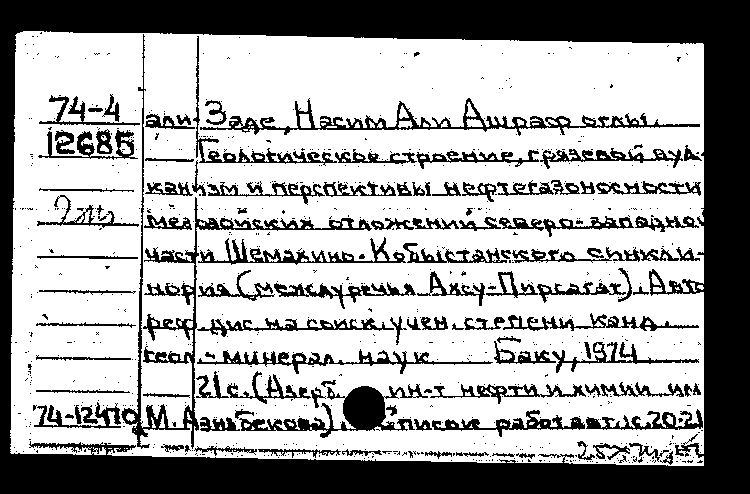 74-4
12685
али-Заде, Насим Али Ашраф оглы.
Геологическое строение, грязевой вул-
канизм и перспективы нефтегазоносности
мезозойских отложений северо-западной
части Шемахино-Кобыстанского синкли-
нория (междуречья Ахсу-Пирсагат). Авто
реф. дис. на соиск. учен. степени канд.
геол.-минерал. наук Баку, 1974.
21 с. (Азерб. ин-т нефти и химии им
74-12470 М. Азизбекова). Список работ авт. с. 20-21